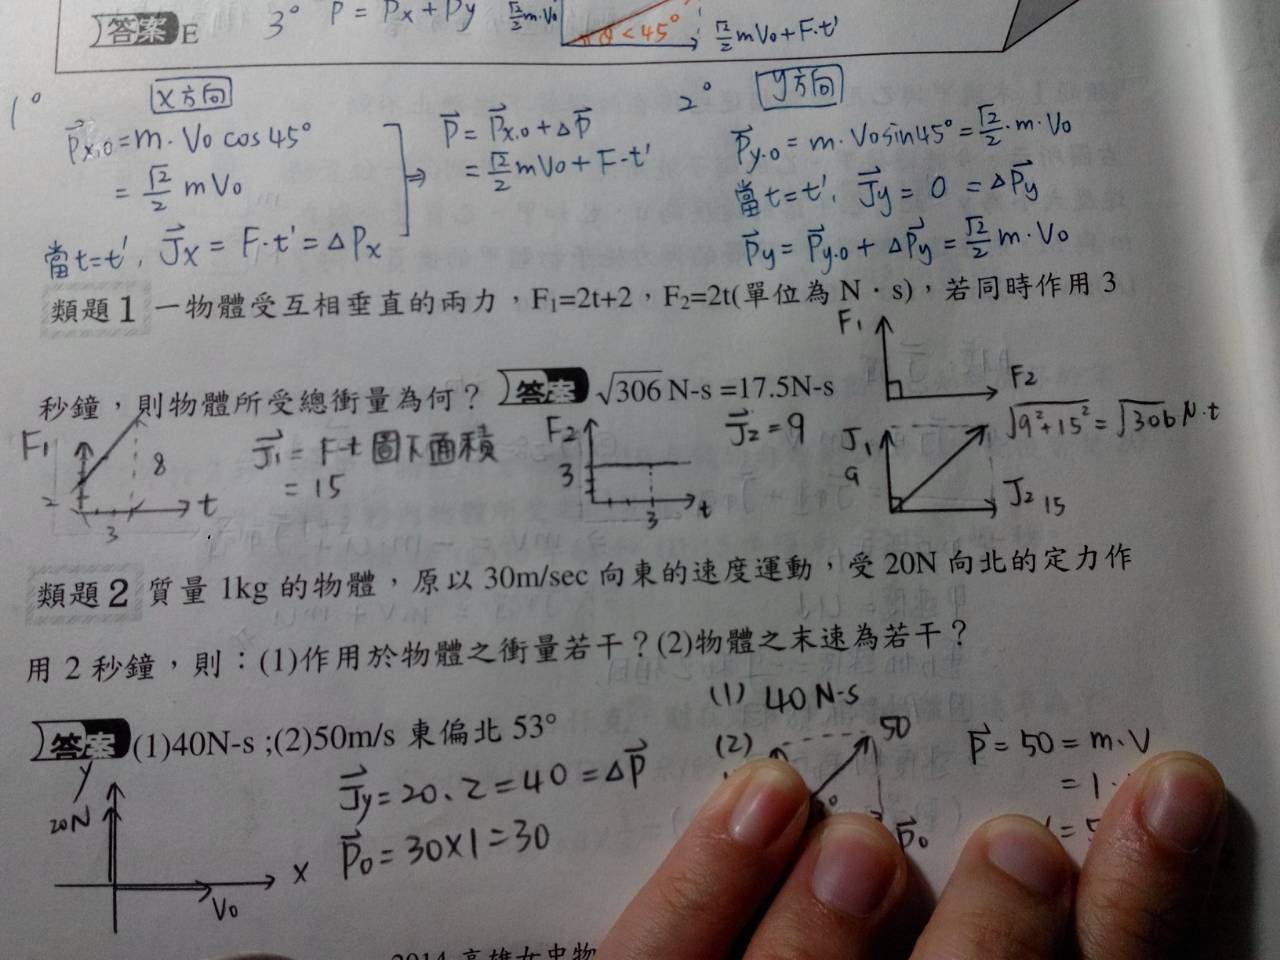 答案 E 3° P = Px + Py √2/2 m·Vo θ<45° √2/2 mVo+F·t'
1° x方向 2° y方向
Px,o = m·Vo cos45°
= √2/2 mVo
當t=t', Jx = F·t' = ΔPx
⇒ P = Px,o + ΔP
= √2/2 mVo + F·t'
Py,o = m·Vo sin45° = √2/2·m·Vo
當t=t', Jy = 0 = ΔPy
Py = Py,o + ΔPy = √2/2 m·Vo
類題1 一物體受互相垂直的兩力，F1=2t+2，F2=2t(單位為N·s)，若同時作用3
秒鐘，則物體所受總衝量為何？ 答案 √306 N-s =17.5N-s
F1 F2
F1 2 8 3 t
J1 = F-t 圖下面積
= 15
F2 3 3 t
J2 = 9
J1 9 J2 15 √9²+15² = √306 N·t
類題2 質量1kg的物體，原以30m/sec向東的速度運動，受20N向北的定力作
用2秒鐘，則：(1)作用於物體之衝量若干？(2)物體之末速為若干？
答案 (1)40N-s ;(2)50m/s 東偏北53°
(1) 40 N-s
(2) 50 P0
y 20N x Vo
Jy = 20、2 = 40 = ΔP
P0 = 30×1 = 30
P = 50 = m·V
= 1·
2014 高雄女中物